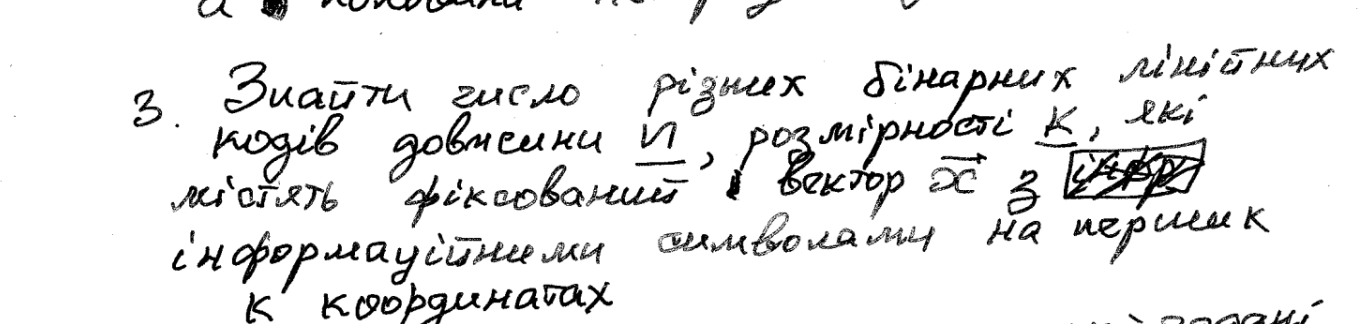 3. Знайти число різних бінарних лінійних
кодів довжини n, розмірності k, які
містять фіксований вектор x з
інформаційними символами на перших
k координатах